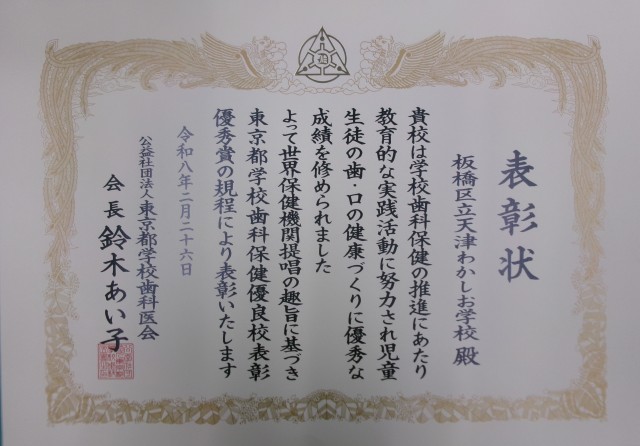 表彰状
板橋区立天津わかしお学校 殿
貴校は学校歯科保健の推進にあたり
教育的な実践活動に努力され児童
生徒の歯・口の健康づくりに優秀な
成績を修められました
よって世界保健機関提唱の趣旨に基づき
東京都学校歯科保健優良校表彰
優秀賞の規程により表彰いたします
令和八年二月二十六日
公益社団法人 東京都学校歯科医会
会長 鈴木あい子